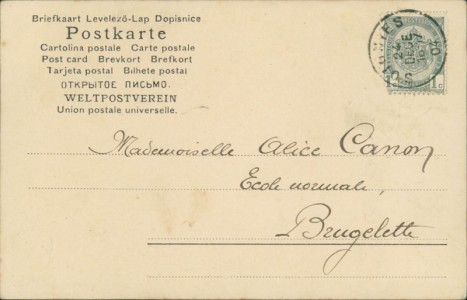 Briefkaart Levelező-Lap Dopisnice
Postkarte
Cartolina postale Carte postale
Post card Brevkort Brefkort
Tarjeta postal Bilhete postal
ОТКРЫТОЕ ПИСЬМО.
WELTPOSTVEREIN
Union postale universelle.
24
DECE
1 c
Mademoiselle Alice Canon
Ecole normale,
Brugelette